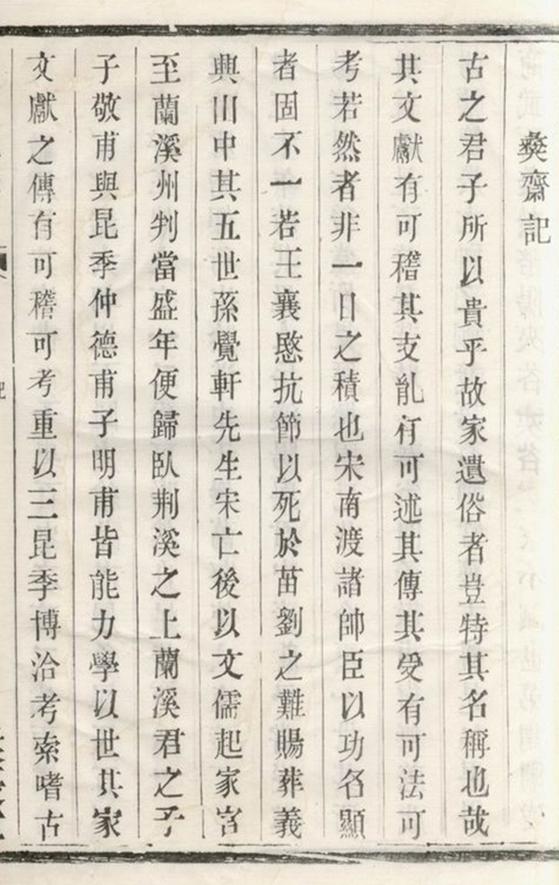 彜齋記
古之君子所以貴乎故家遺俗者豈特其名稱也哉
其文獻有可稽其支亂有可述其傳其受有可法可
考若然者非一日之積也宋南渡諸帥臣以功名顯
者固不一若王襄愍抗節以死於苗劉之難賜葬義
興山中其五世孫覺軒先生宋亡後以文儒起家宮
至蘭溪州判當盛年便歸臥荆溪之上蘭溪君之子
子敬甫與昆季仲德甫子明甫皆能力學以世其家
文獻之傳有可稽可考重以三昆季博洽考索嗜古